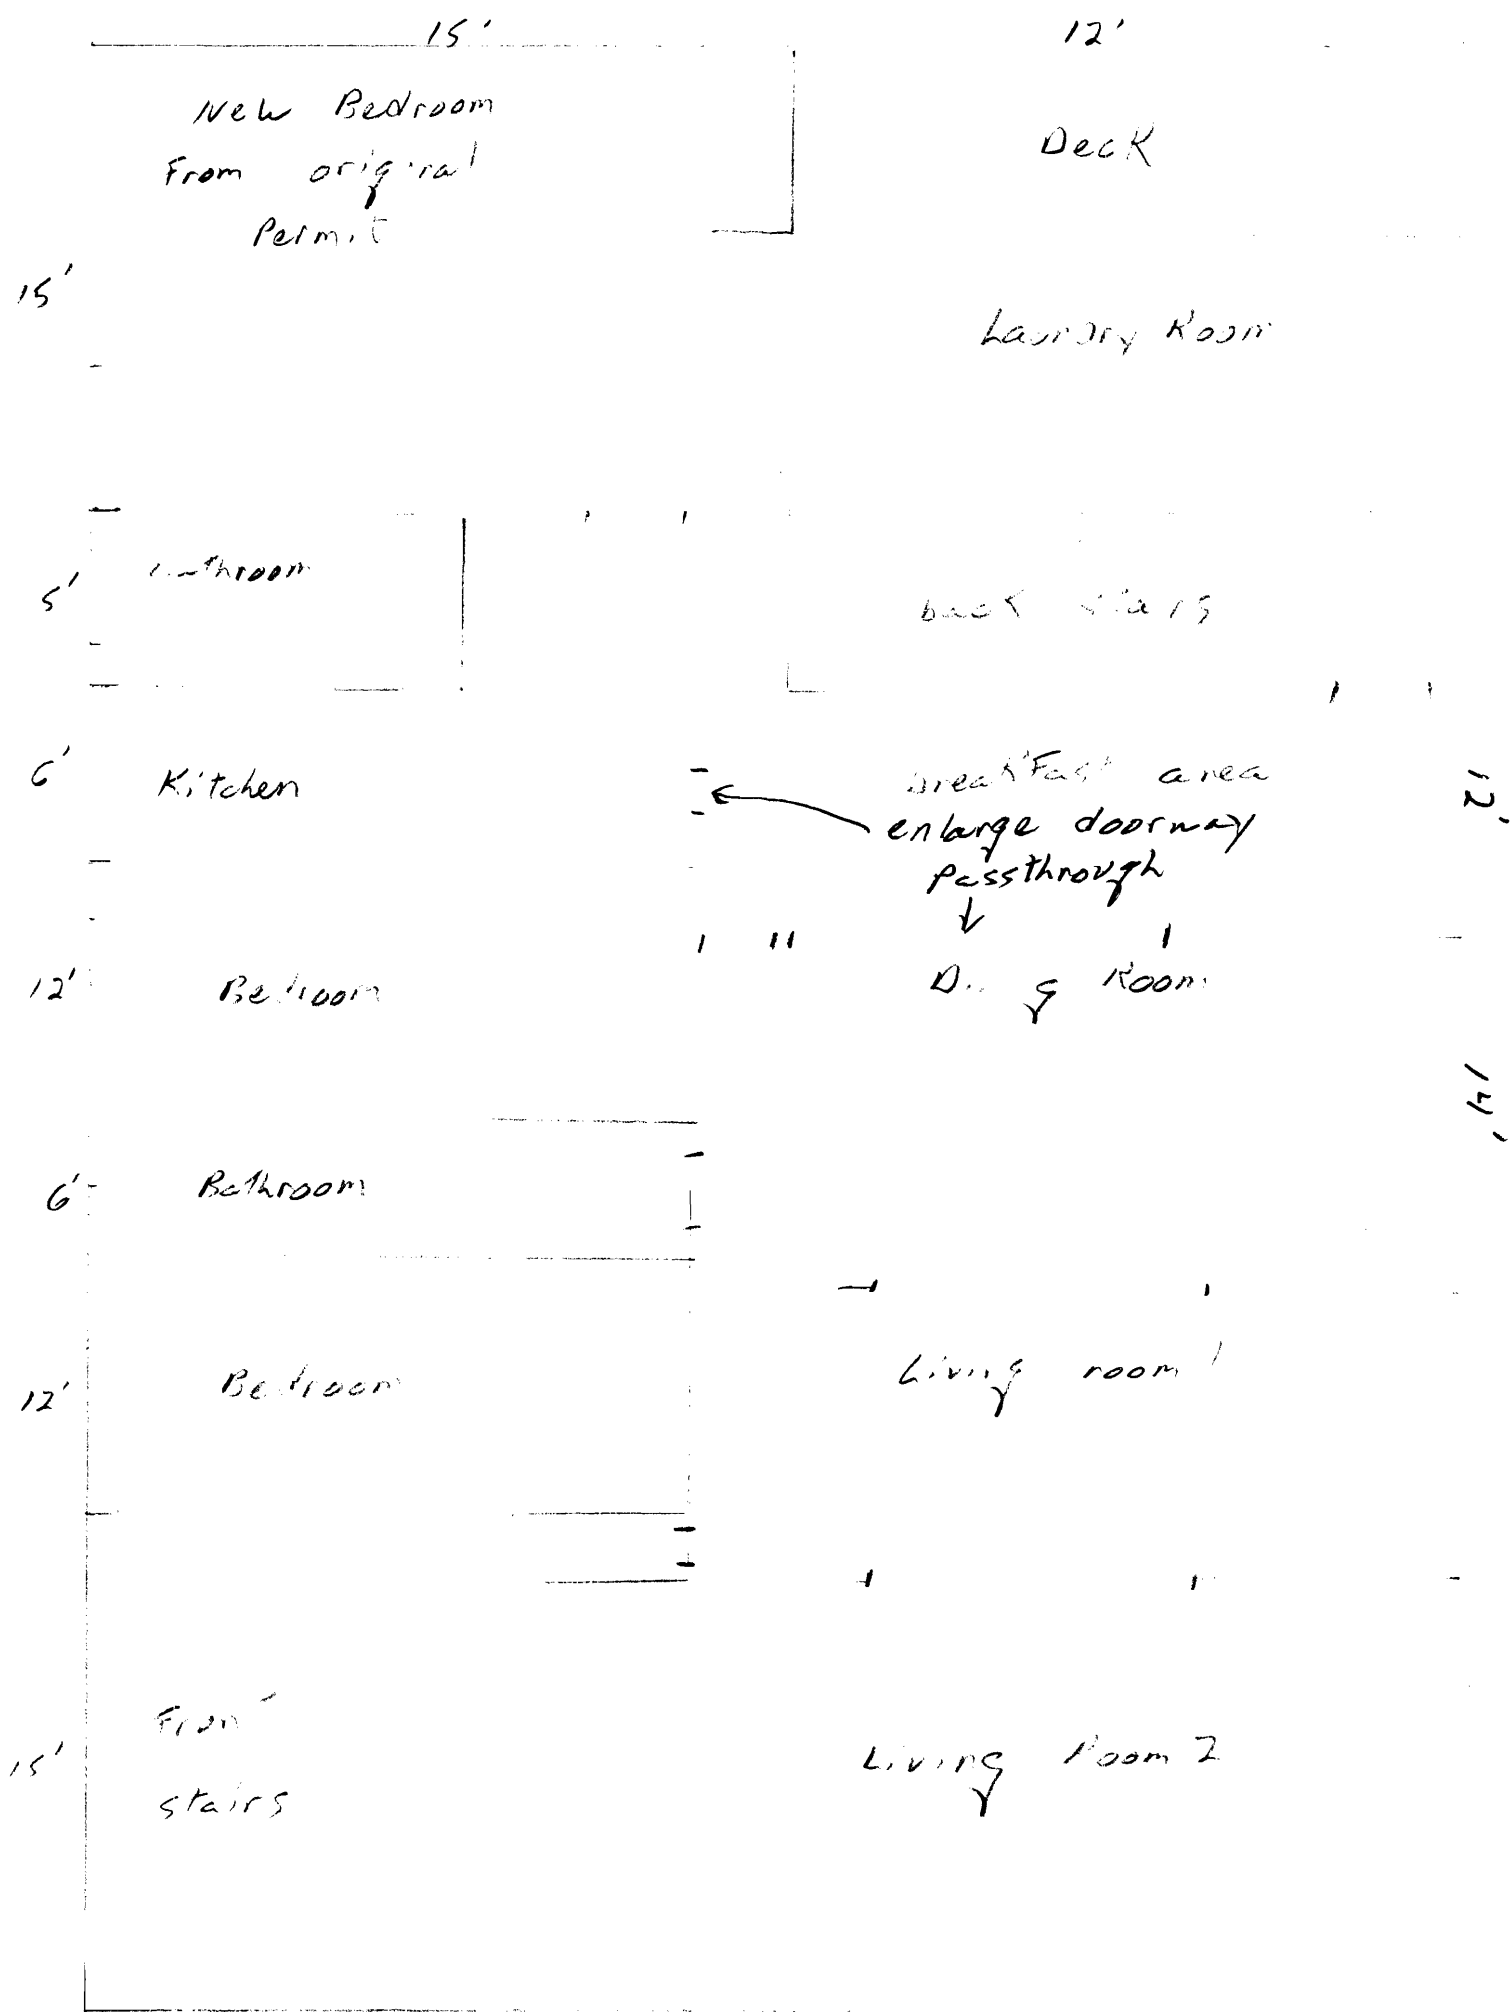 15'
12'
New Bedroom
From original
Permit
Deck
15'
Laundry Room
5'
bathroom
back stairs
6'
Kitchen
breakFast area
12'
enlarge doorway
Passthrough
12'
Bedroom
Room
14'
6'
Bathroom
12'
Bedroom
Living room 1
Front
stairs
15'
Living Room 2